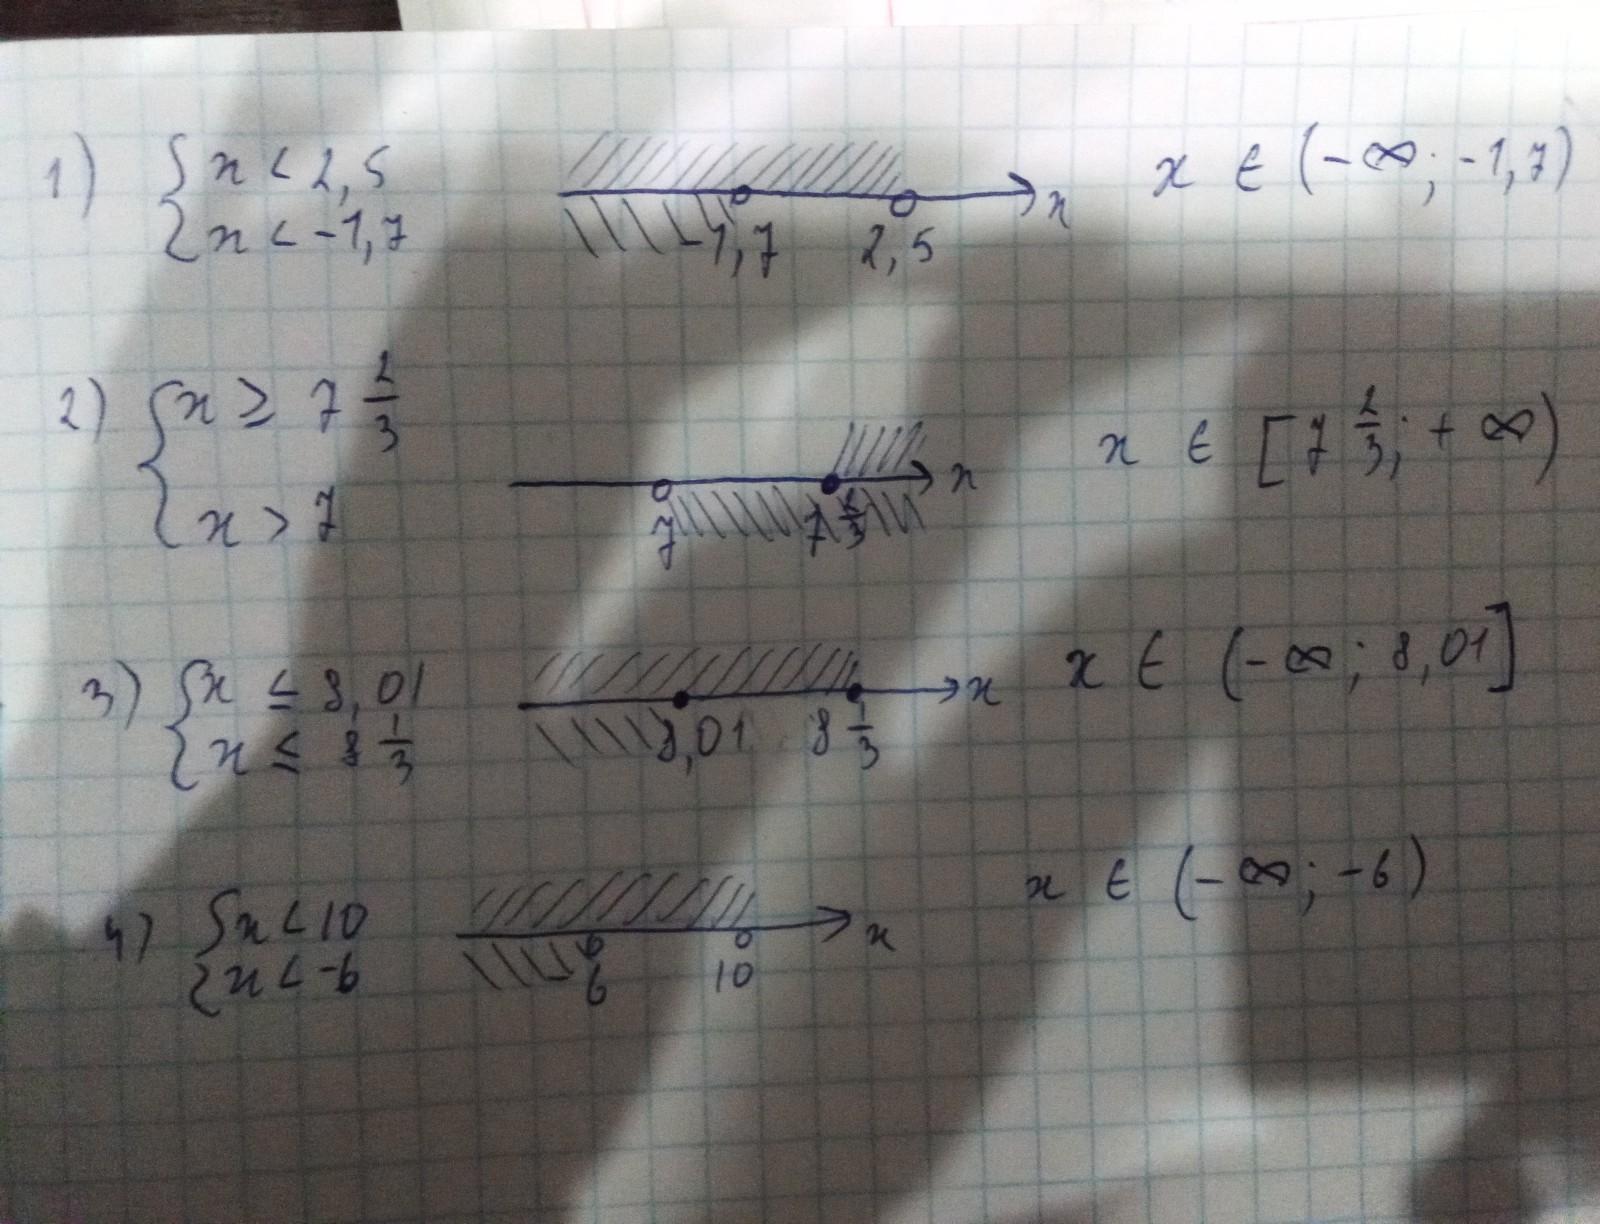 1) { x < 2,5
x < -1,7
-1,7 2,5 x
x ∈ (-∞; -1,7)
2) { x ≥ 7 2/3
x > 7
7 7 2/3 x
x ∈ [7 2/3; +∞)
3) { x ≤ 8,01
x ≤ 8 1/3
8,01 8 1/3 x
x ∈ (-∞; 8,01]
4) { x < 10
x < -6
-6 10 x
x ∈ (-∞; -6)